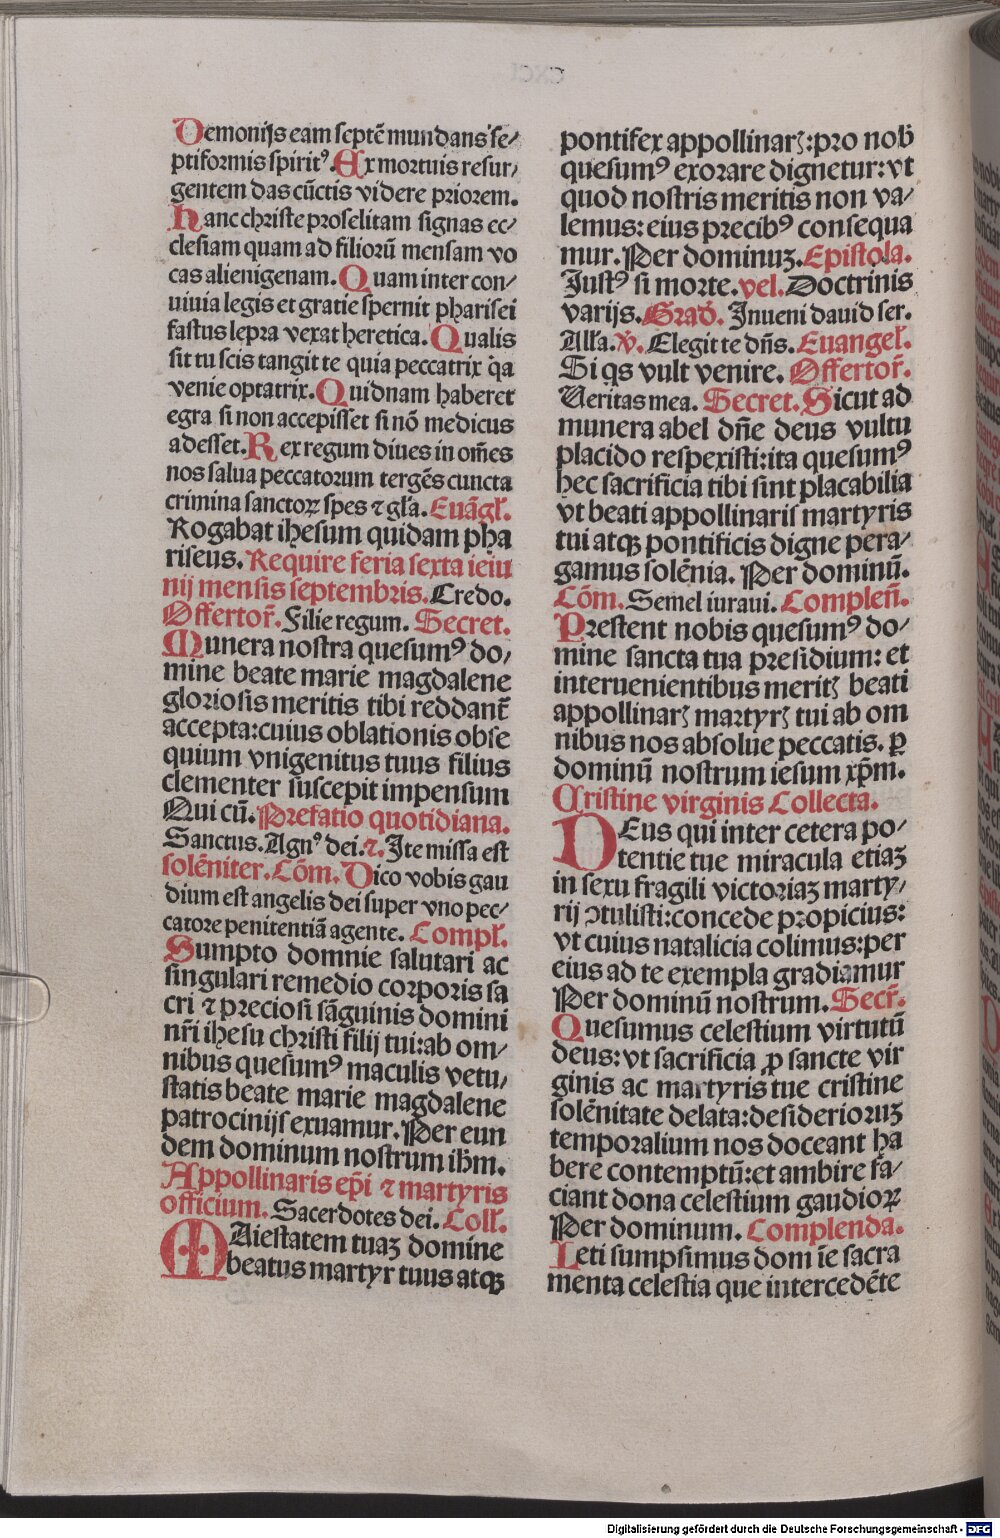 Demonijs eam septē mundans se/
ptiformis spiritꝰ. Ex mortuis resur/
gentem das cūctis videre priorem.
Hanc christe proselitam signas ec/
clesiam quam ad filiorū mensam vo
cas alienigenam. Quam inter con/
uiuia legis et gratie spernit pharisei
fastus lepra vexat heretica. Qualis
sit tu scis tangit te quia peccatrix q̇a
venie optatrix. Quidnam haberet
egra si non accepisset si nō medicus
adesset. Rex regum diues in om̄es
nos salua peccatorum tergēs cuncta
crimina sanctoꝝ spes ⁊ gl̄a. Euāgl̄.
Rogabat ihesum quidam pha
riseus. Require feria sexta ieiu
nij mensis septembris. Credo.
Offertor̄. Filie regum. Secret.
Munera nostra quesumꝰ do/
mine beate marie magdalene
gloriosis meritis tibi reddant̄
accepta: cuius oblationis obse
quium vnigenitus tuus filius
clementer suscepit impensum
Qui cū. Prefatio quotidiana.
Sanctus. Agnꝰ dei. ⁊. Ite missa est
solēniter. Cōm. Dico vobis gau
dium est angelis dei super vno pec/
catore penitentiā agente. Compl̄.
Sumpto domnie salutari ac
singulari remedio corporis sa
cri ⁊ preciosi sāguinis domini
nr̄i ihesu christi filij tui: ab om/
nibus quesumꝰ maculis vetu/
statis beate marie magdalene
patrocinijs exuamur. Per eun
dem dominum nostrum ihm̄.
Appollinaris ep̄i ⁊ martyris
officium. Sacerdotes dei. Coll̄.
MAiestatem tuaꝫ domine
beatus martyr tuus atqꝫ
pontifex appollinarꝭ: pro nob̄
quesumꝰ exorare dignetur: vt
quod nostris meritis non va/
lemus: eius precibꝰ consequa
mur. Per dominuꝫ. Epistola.
Iustꝰ si morte. vel. Doctrinis
varijs. Grad̄. Inueni dauid ser.
All̄a. ℣. Elegit te dn̄s. Euangel̄.
Si qs vult venire. Offertor̄.
Ueritas mea. Secret. Sicut ad
munera abel dn̄e deus vultu
placido respexisti: ita quesumꝰ
hec sacrificia tibi sint placabilia
vt beati appollinaris martyris
tui atqꝫ pontificis digne pera/
gamus solēnia. Per dominū.
Cōm. Semel iuraui. Complen̄.
Prestent nobis quesumꝰ do/
mine sancta tua presidium: et
interuenientibus meritꝭ beati
appollinarꝭ martyrꝭ tui ab om
nibus nos absolue peccatis. ꝑ
dominū nostrum iesum xp̄m.
Cristine virginis Collecta.
DEus qui inter cetera po/
tentie tue miracula etiaꝫ
in sexu fragili victoriaꝫ marty/
rij ↄtulisti: concede propicius:
vt cuius natalicia colimus: per
eius ad te exempla gradiamur
Per dominū nostrum. Secr̄.
Quesumus celestium virtutū
deus: vt sacrificia ꝓ sancte vir
ginis ac martyris tue cristine
solēnitate delata: desiderioruꝫ
temporalium nos doceant ha
bere contemptū: et ambire fa/
ciant dona celestium gaudioꝝ
Per dominum. Complenda.
Leti sumpsimus dom īe sacra
menta celestia que intercedēte